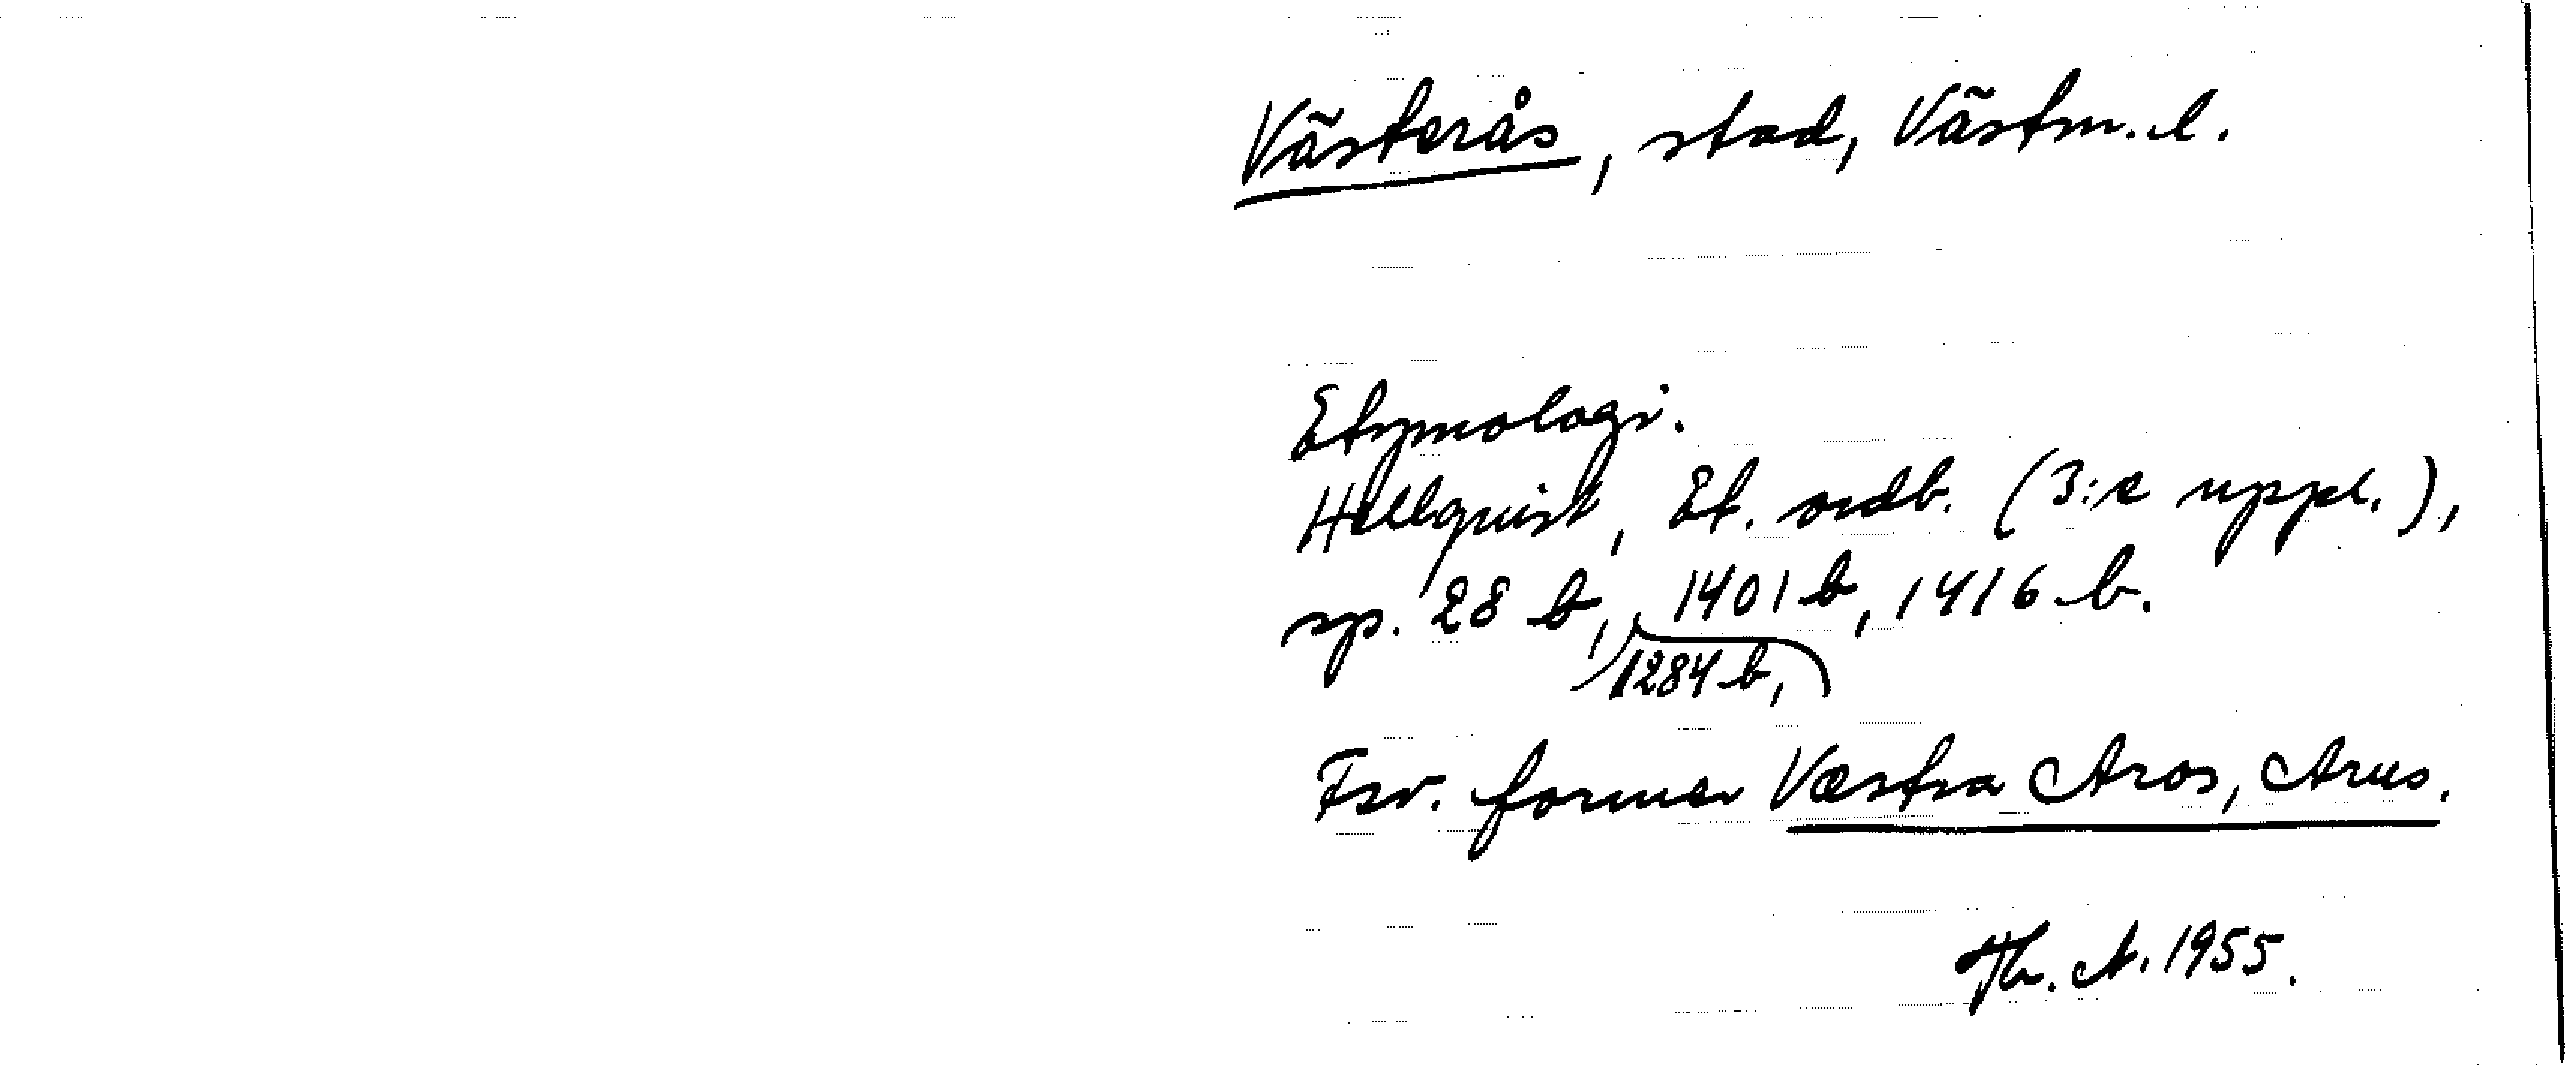 Västerås, stad, Västm. l.
Etymologi.
Hellquist, Et. ordb. (3:e uppl.),
sp. 28 b, 1401 b, 1416 b.
1284 b,
Fsv. former Væstra Aros, Arus.
Th. A. 1955.